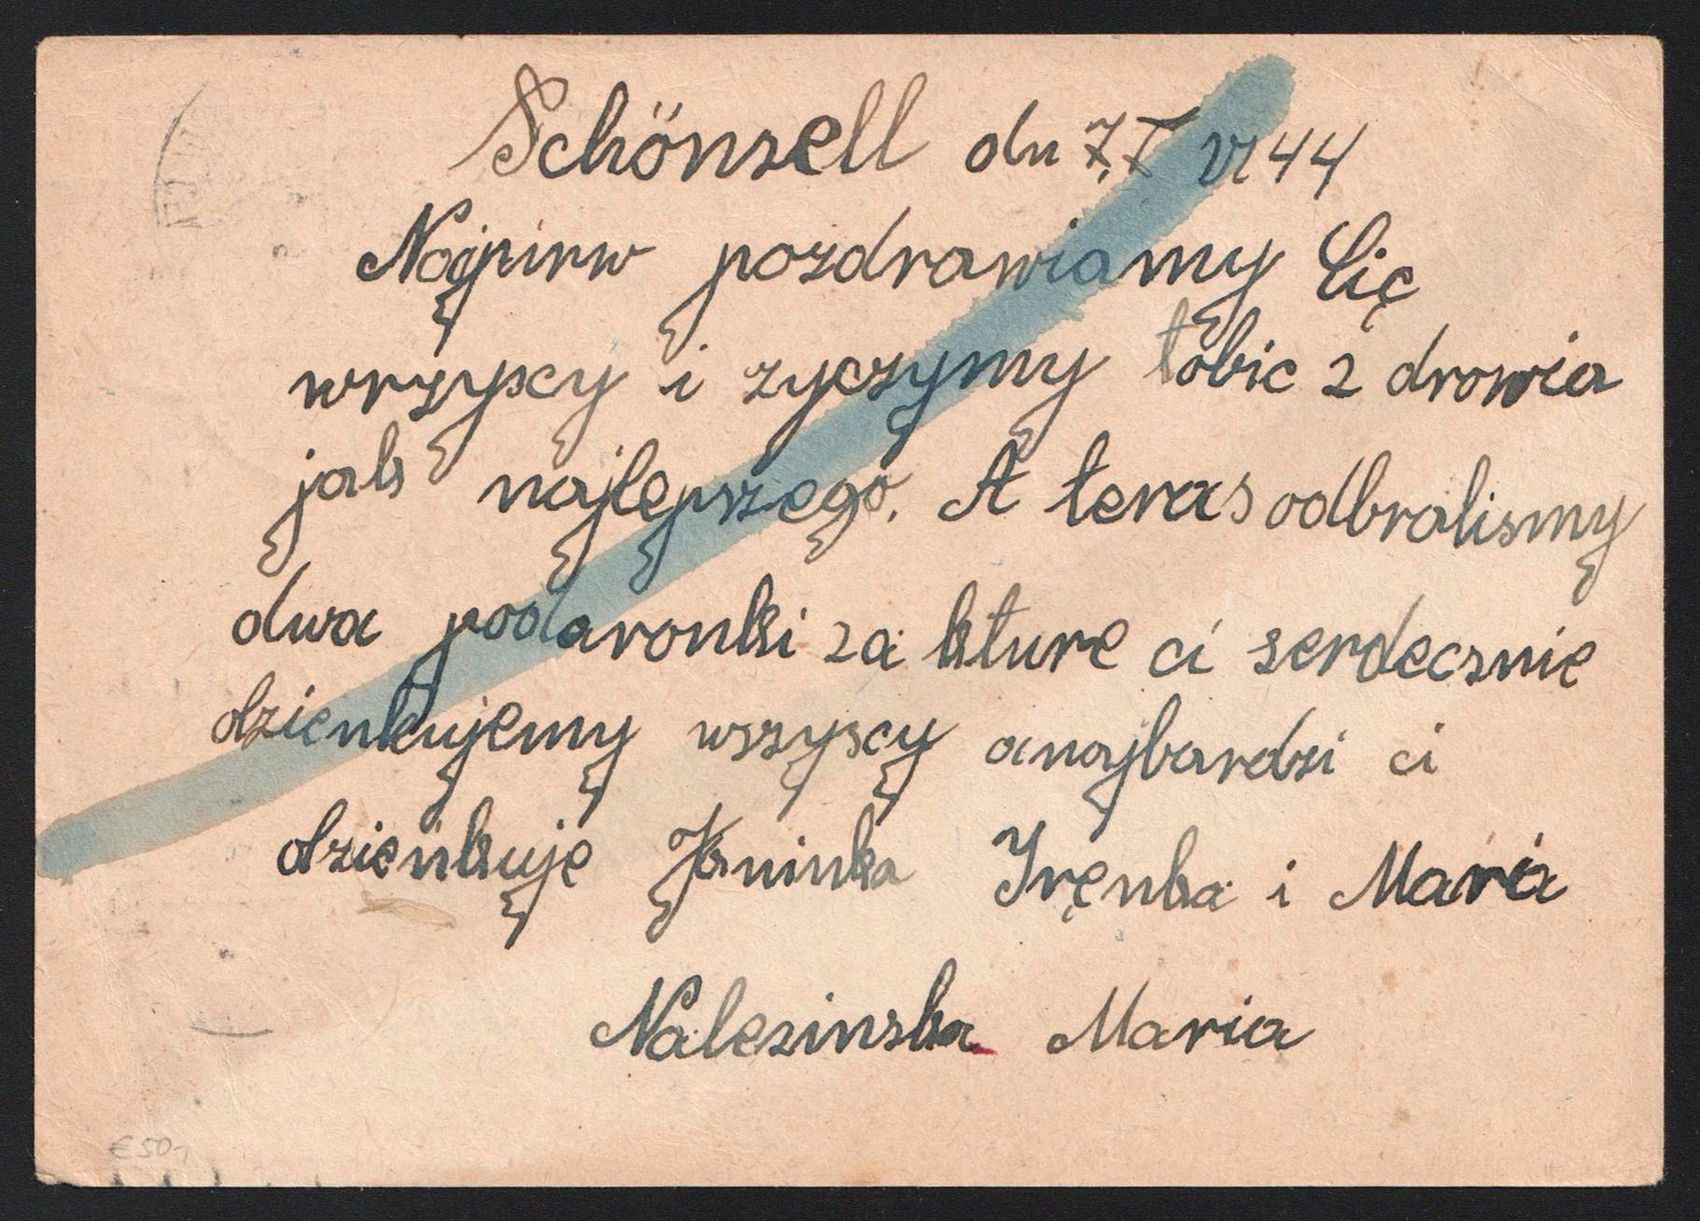 Schönsell dn 7,7 VI 44
Nojpirw pozdrawiamy Cię
wrzyscy i zyczymy tobic z drowia
jak najlepszego. A teras odbralismy
dwa podaronki za kture ci serdecznie
dzienkujemy wszyscy anajbardzi ci
dzienkuje Janinka Iręnka i Maria
Nalezinska Maria
€ 50,